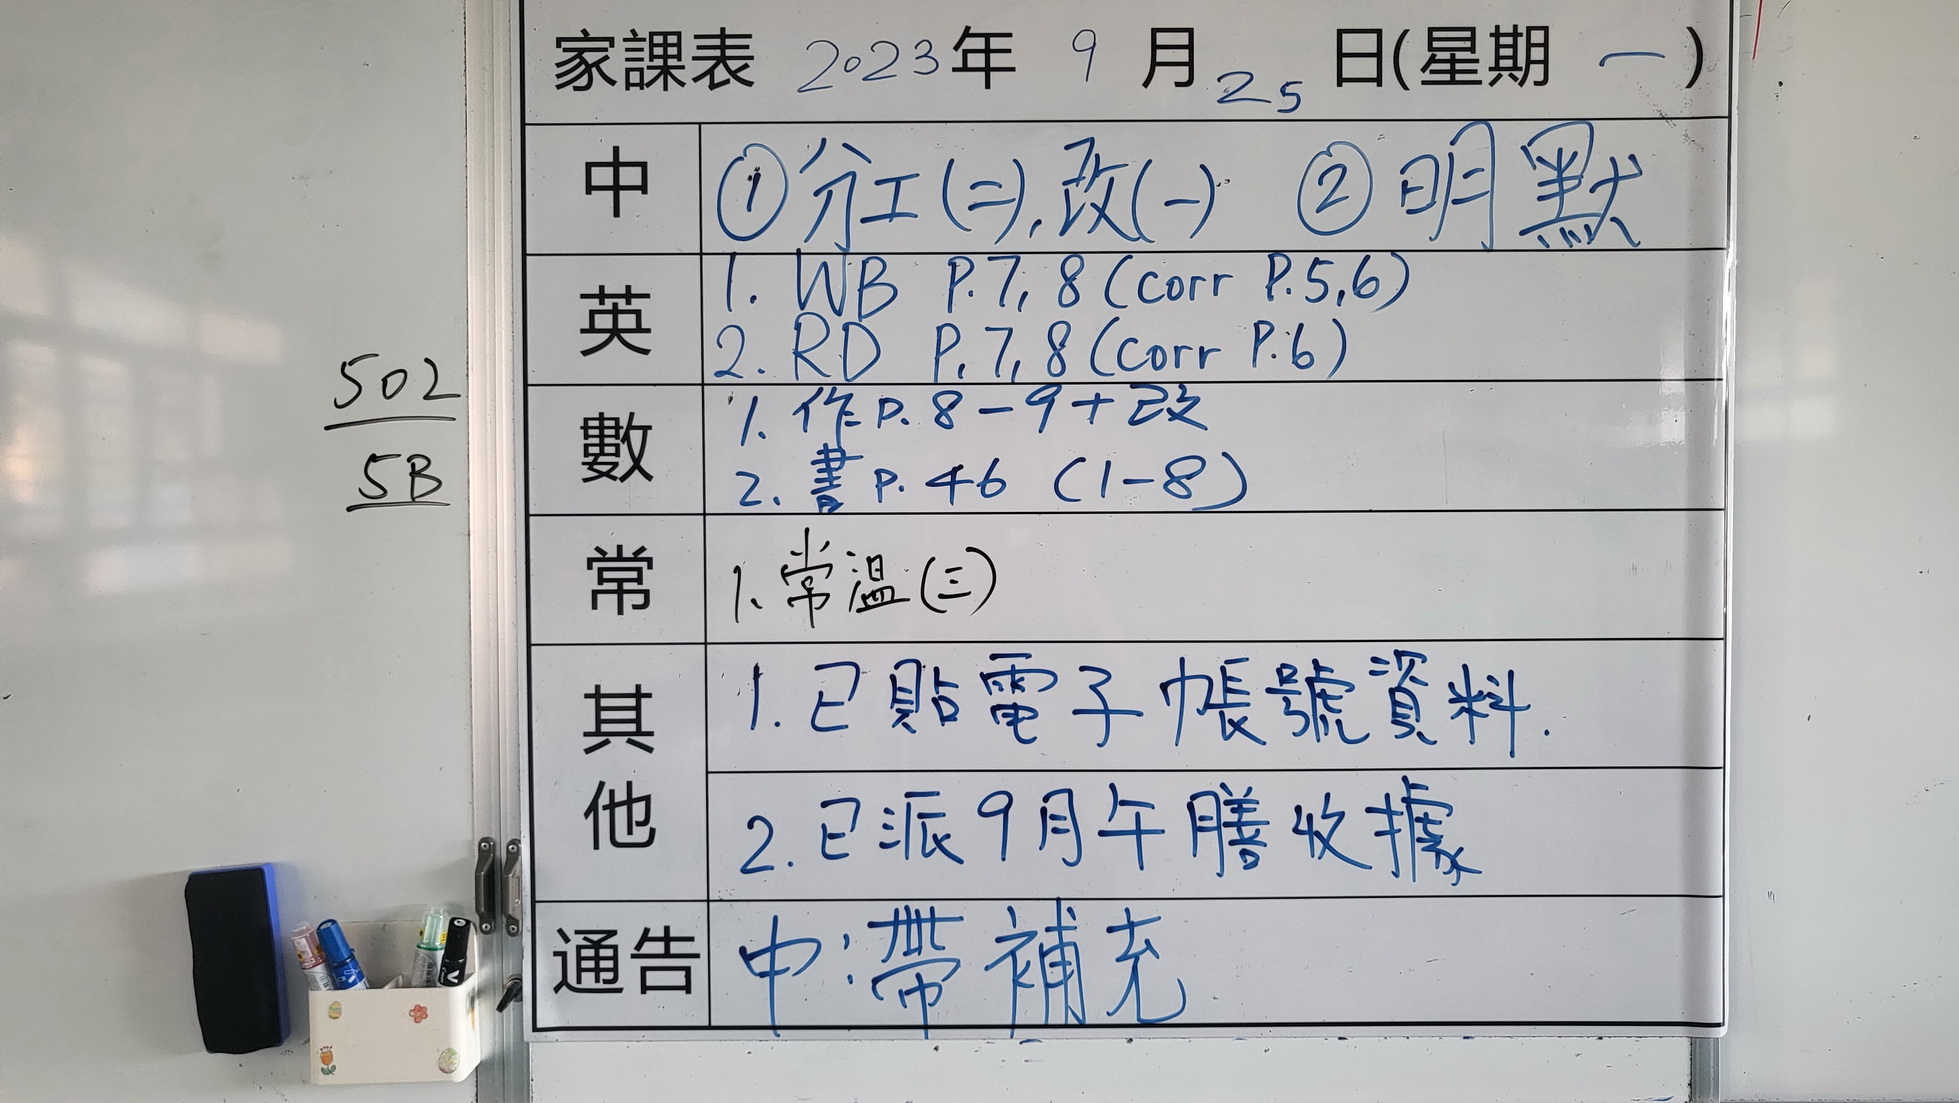 家課表 2023年 9月 25日(星期一)
中 ①分工(二),改(一) ②明默
英 1. WB P.7,8 (corr P.5,6)
2. RD P.7,8 (corr P.6)
數 1. 作P.8-9+改
2. 書P.46 (1-8)
常 1.常溫(三)
其他 1.已貼電子帳號資料.
2.已派9月午膳收據
通告 中:帶補充
502
5B